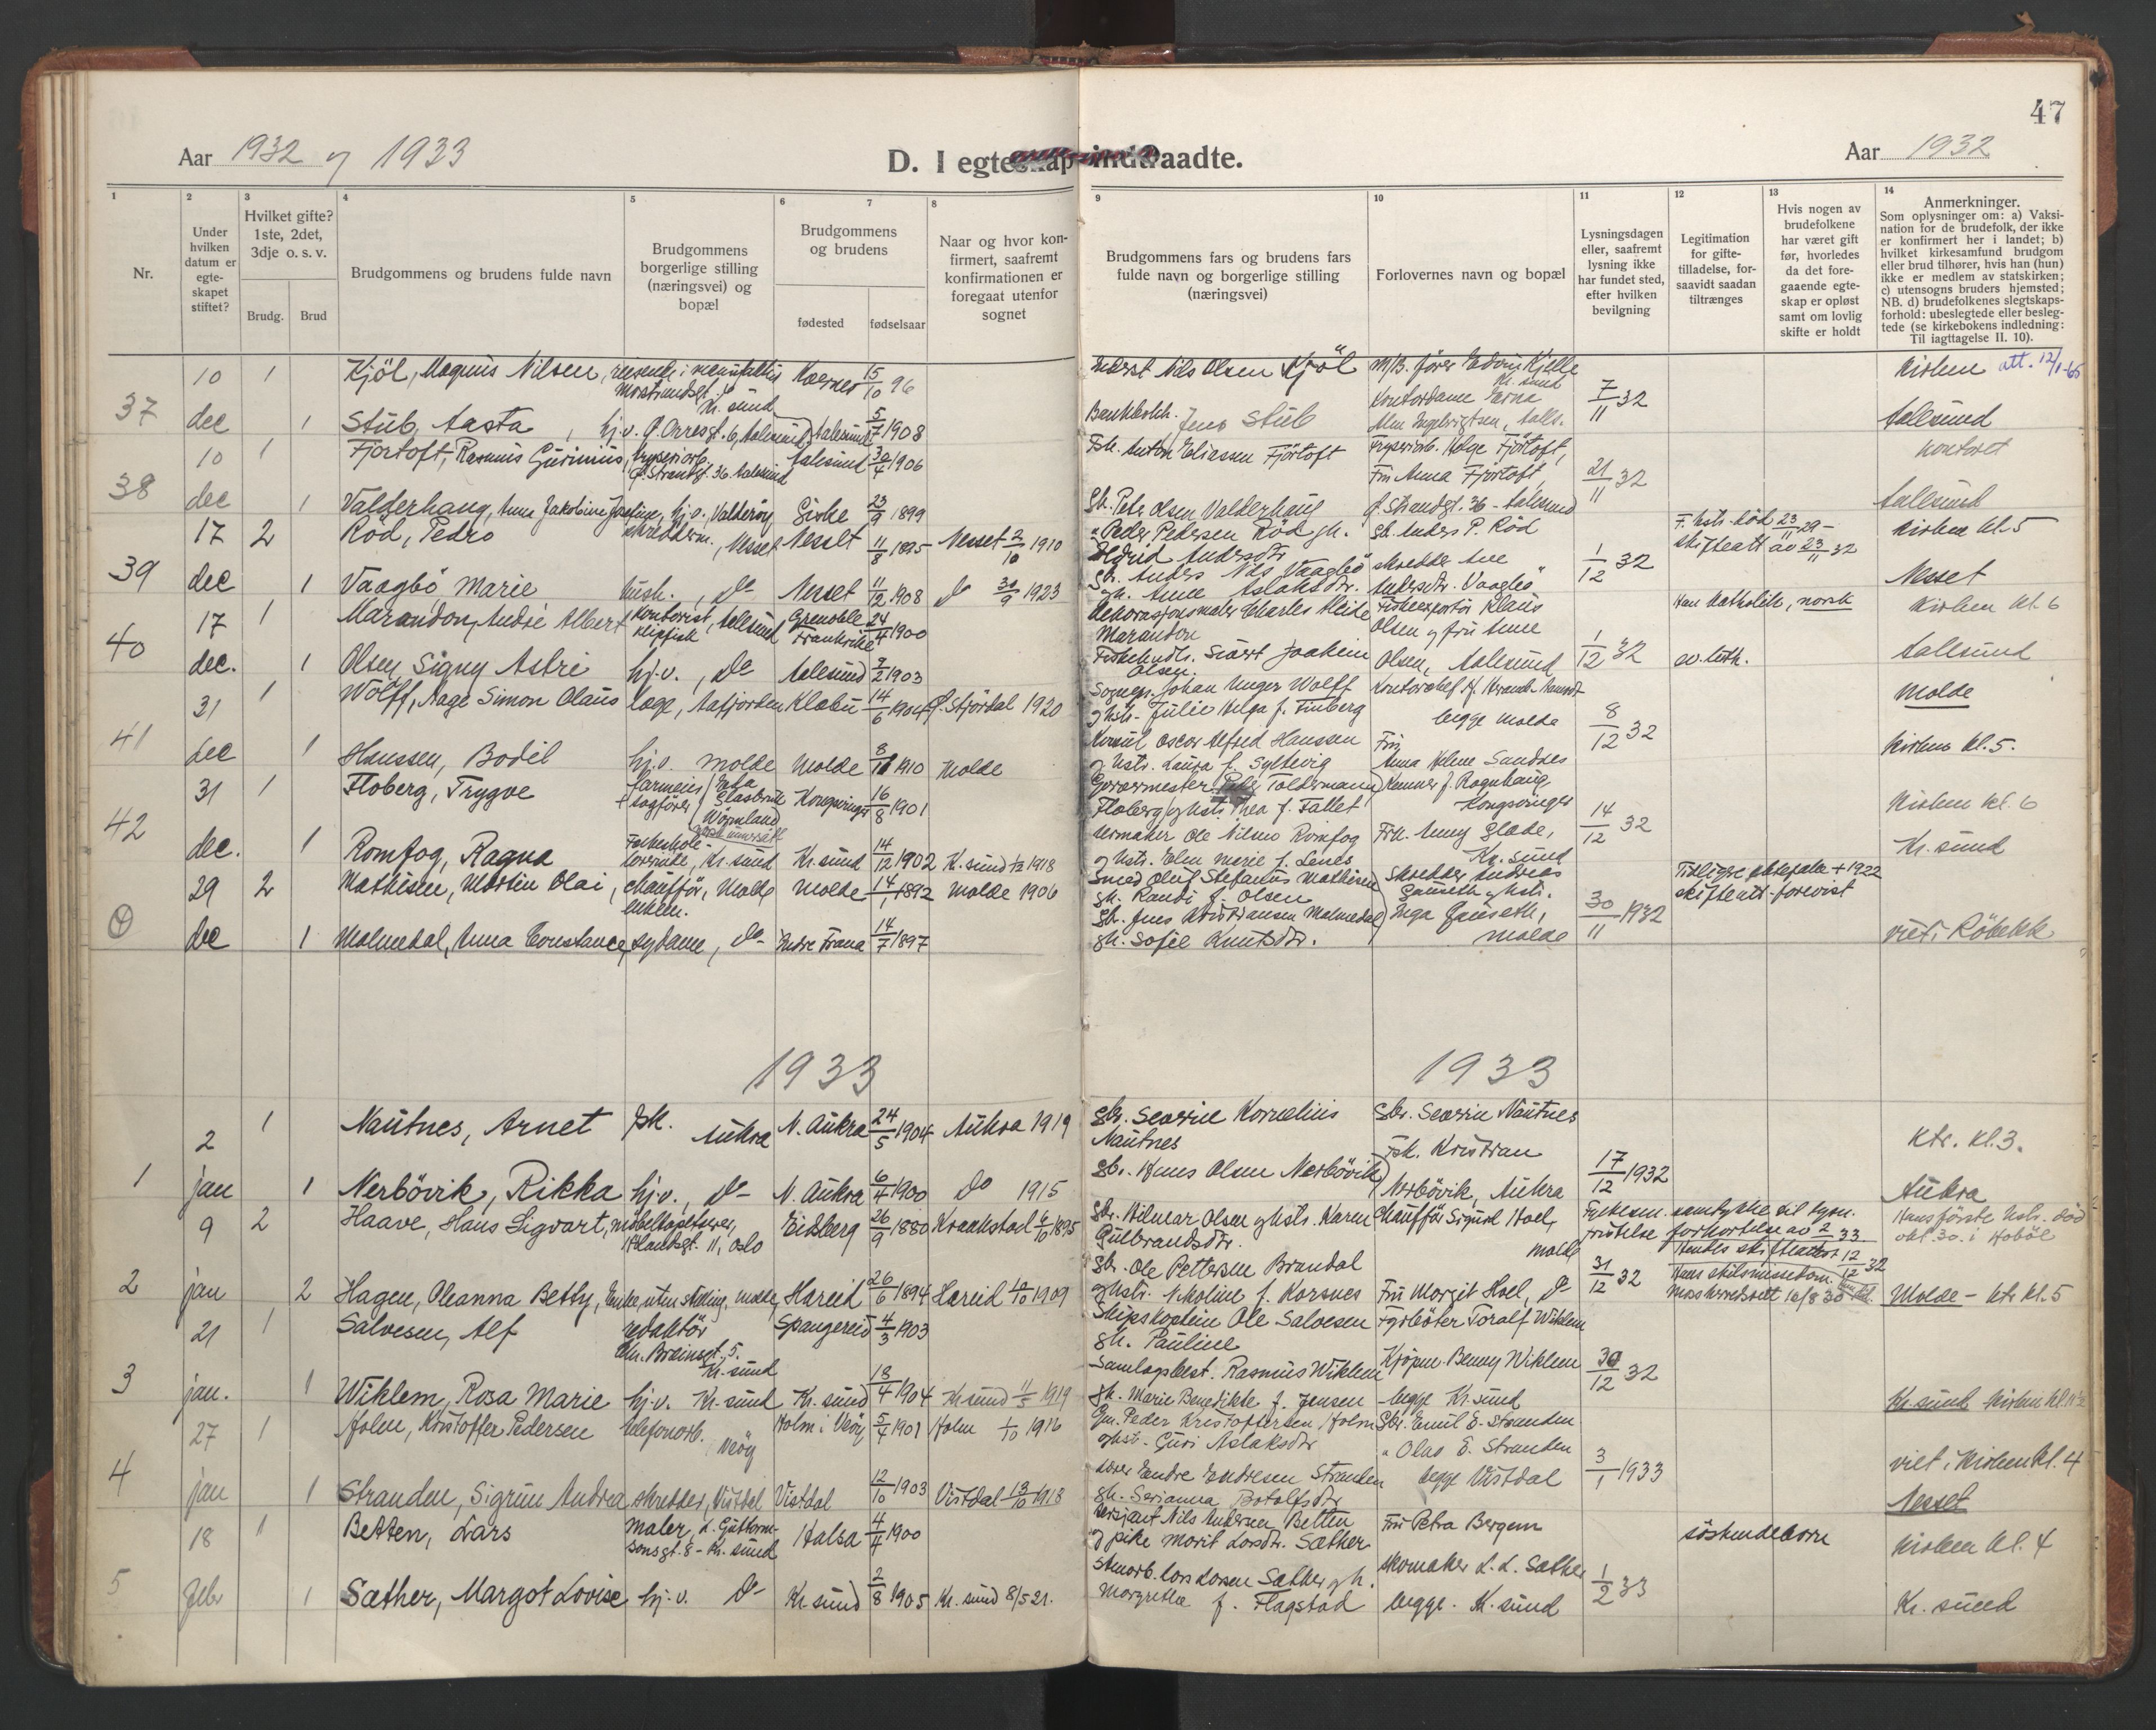 47
Aar 1932 og 1933
D. I egteskap indtraadte.
Aar 1932
1
2
3
4
5
6
7
8
9
10
11
12
13
14
Nr.
Under hvilken datum er egte-skapet stiftet?
Hvilket gifte? 1ste, 2det, 3dje o. s. v.
Brudg.
Brud
Brudgommens og brudens fulde navn
Brudgommens borgerlige stilling (næringsvei) og bopæl
Brudgommens og brudens
fødested
fødselsaar
Naar og hvor kon-firmert, saafremt konfirmationen er foregaat utenfor sognet
Brudgommens fars og brudens fars fulde navn og borgerlige stilling (næringsvei)
Forlovernes navn og bopæl
Lysningsdagen eller, saafremt lysning ikke har fundet sted, efter hvilken bevilgning
Legitimation for gifte-tilladelse, for-saavidt saadan tiltrænges
Hvis nogen av brudefolkene har været gift før, hvorledes da det fore-gaaende egte-skap er opløst samt om lovlig skifte er holdt
Anmerkninger.
Som oplysninger om: a) Vaksi-nation for de brudefolk, der ikke er konfirmert her i landet; b) hvilket kirkesamfund brudgom eller brud tilhører, hvis han (hun) ikke er medlem av statskirken; c) utensogns bruders hjemsted; NB. d) brudefolkenes slegtskaps-forhold: ubeslegtede eller besleg-tede (se kirkebokens indledning: Til iagttagelse II. 10).
37
10 dec
1
Kjöl, Magnus Nilsen, reisende i manufaktur
Kr. sund
15/10 96
Nils Olsen Kjöl
M/B. förer Edvin Kjelle
Kr. sund
7/11 32
Kirken att. 12/1-66
1
Stub, Aasta, hj.v. Ö. Orresgt. 6, Aalesund
Aalesund
5/7 1908
Jens Stub
Kontordame Erna
Aalesund
38
10 dec
1
Fjörtoft, Rasmus Gurinius, fryseriarb.
Ö. Strandgt. 36. Aalesund
Aalesund
30/4 1906
Fsk. Anton Eliassen Fjörtoft
Fryseriarb. Helge Fjörtoft,
Fru Anna Fjörtoft
21/11 32
Kontoret
1
Valderhaug, Anne Jakobine Josefine, hj.v., Valderöy
Giske
23/9 1899
Gb. Peter Olsen Valderhaug
Ö. Strandgt. 36 - Aalesund
Aalesund
39
17 dec
2
Röd, Pedro
skredderm., Nesset
Nesset
11/8 1895
Nesset 2/10 1910
Peder Pedersen Röd gh.
Gb. Anders P. Röd
1/12 32
F. hstr. död 23/11 29 -
skifteatt av 23/11 32
Kirken kl. 5
1
Vaagbö Marie
hush., do
Nesset
11/12 1908
do 30/9 1923
Gb. Anders Nils Vaagbö
gh. Anne Aslaksdtr.
Andersdtr. Vaagbö
Nesset
40
17 dec.
1
Marandon, Andre Albert
Kontorist, Aalesund
klipfisk
Grenoble Frankrike
24/4 1900
Dekorasjonsmaler Charles
Marandon
Fiskeexportör Klaus
Olsen og fru Anne
1/12 32
Han katholik, norsk
Kirken kl. 6
1
Olsen, Signy Astri
hj.v., do
Aalesund
9/2 1903
Fiskehndl. Sivert Joakim
Olsen
Olsen, Aalesund
ev. luth.
Aalesund
41
31 dec
1
Wolff, Aage Simon Olaus
læge, Aafjorden
Klæbu
14/6 1904
Ö. Stjördal 1920
Sognepr. Johan Unger Wolff
og hstr. Julie Helga f. Finberg
begge Molde
8/12 32
Molde
1
Hanssen, Bodil
hj.v. Molde
Molde
8/11 1910
Molde
Konsul Oscar Alfred Hanssen
og hstr. Laura f. Syltevig
Fru
Anna Helene Sandnes
Kirken kl. 5.
42
31 dec.
1
Floberg, Trygve
Eda
Glasbruk
Wermland
Kongsvinger
16/8 1901
Garvermester Toldermann
Floberg og hstr. Thea f. Fallet
Kongsvinger
14/12 32
Kirken kl. 6
1
Romfog, Ragna
Kr. sund
Kr. sund
14/12 1902
K. sund 1918
Urmaker Ole Nilsen Romfog
og hstr. Elen Marie f. Lenes
Frk. Anny Glade,
Kr. sund
Kr. sund
29 dec
2
Mathisen, Martin Olai,
chaufför, Molde
enkem.
Molde
14/1 1892
Molde 1906
Smed Oluf Stefanus Mathisen
gh. Randi f. Olsen
Skredder Andreas
Gauseth og hstr.
30/11 1932
Tidligere ektefelle + 1922
skifteatt. forevist
1
Malmedal, Anna Constance,
sydame, do
Indre Fræna
14/7 1897
Gb. Jens Kristiansen Malmedal
gh. Sofie Knutsdtr.
Inga Gauseth,
Molde
viet i Röbekk
1933
1933
1
2 jan
1
Nautnes, Arnet
fsk. Aukra
N. Aukra
24/5 1904
Aukra 1919
Gbr. Severin Kornelius
Nautnes
Gbr. Severin Nautnes
Fsk. Kristian
17/12 1932
Ktr. kl. 3.
1
Nerbövik, Rikka
hj.v., do
N. Aukra
6/4 1900
do 1915
Gbr. Hans Olsen Nerbövik
Nerbövik, Aukra
Aukra
2
9 jan
2
Haave, Hans Sigvart,
möbeltapetserer,
11, Oslo
Eidsberg
26/9 1880
Kraakstad 6/10 1895
Gbr. Hilmar Olsen og hstr. Karen
Gulbrandsdtr.
Chaufför Sigurd Hoel,
Molde
31/12 32
samtykke til lysn.
fristelse forkortelse av 2/1 33
Hendes skifteattest 12/12 32
Hans förste hstr. död
okt. 30. i Hoböl
2
Hagen, Oleanna Betty, Enke, uten stilling, Molde
Hareid
26/6 1894
Hareid 10/10 1909
Gbr. Ole Pettersen Brandal
og hstr. Nikoline f. Korsnes
Fru Margit Hoel, do
Molde - ktr kl. 5
3
21 jan.
1
Salvesen, Alf
redaktör
5.
Kr. sund
Spangereid
4/3 1903
Skipskaptein Ole Salvesen
gh. Pauline
Fyrböter Toralf Wiklem
30/12 32
1
Wiklem, Rosa Marie
hj.v. Kr. sund
Kr. sund
18/4 1904
Kr. sund 11/5 1919
Samlagsbest. Rasmus Wiklem
gh. Marie Benedikte f. Jensen
Kjöpm. Benny Wiklem
- begge Kr. sund
Kr. sund
4
27 jan
1
Holm, Kristoffer Pedersen
telefonarb. Veöy
Holm i Veöy
5/4 1901
Holm 1/10 1916
Gm. Peder Kristoffersen Holm
og hstr. Guri Aslaksdtr
Gbr. Emil E. Stranden
" Olav E. Stranden
3/1 1933
viet i kirken kl. 4
1
Stranden, Sigrun Andrea
skredder, Vistdal
Vistdal
12/10 1903
Vistdal 13/10 1918
Lærer Endre Endresen Stranden
gh. Serianna Botolfsdtr
begge Vistdal
Nesset
5
18 Febr
1
Betten, Lars
maler, L. Guttorm-
sonsgt. 8 - Kr. sund
Halsa
4/4 1900
Sersjant Nils Andersen Betten
og pike Marit Larsdtr. Sæther
Fru Petra Bergem
1/2 33
söskendebarn
Kirken kl. 4
1
Sæther, Margot Lovise
hj.v. do
Kr. sund
2/8 1905
Kr. sund 8/5 21.
Lars Larsen Sæther gh.
Margrethe f. Flagstad
Skomaker L. L. Sæther
begge. K. sund
Kr. sund